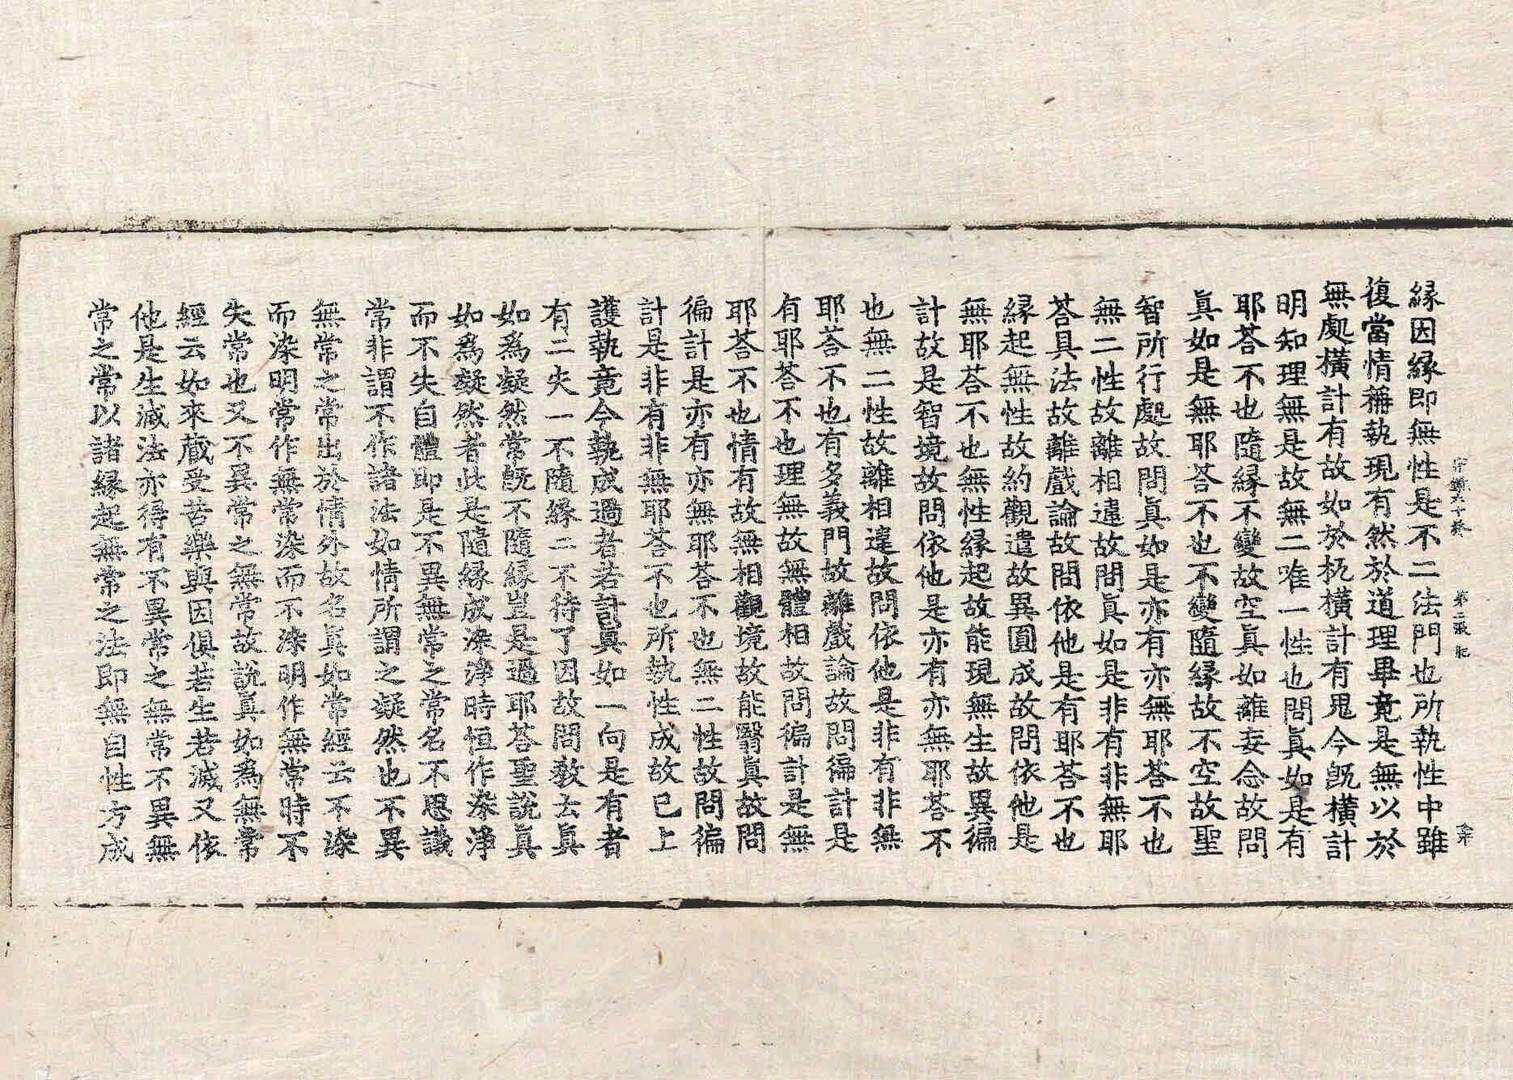 宗鏡六十終 第二張 肥
緣因緣即無性是不二法門也所執性中雖
復當情稱執現有然於道理畢竟是無以於
無處橫計有故如於杌橫計有鬼今旣橫計
明知理無是故無二唯一性也問眞如是有
耶荅不也隨緣不變故空眞如離妄念故問
眞如是無耶荅不也不變隨緣故不空故聖
智所行處故問眞如是亦有亦無耶荅不也
無二性故離相違故問眞如是非有非無耶
荅具法故離戲論故問依他是有耶荅不也
緣起無性故約觀遣故異圓成故問依他是
無耶荅不也無性緣起故能現無生故異徧
計故是智境故問依他是亦有亦無耶荅不
也無二性故離相違故問依他是非有非無
耶荅不也有多義門故離戲論故問徧計是
有耶荅不也理無故無體相故問徧計是無
耶荅不也情有故無相觀境故能翳眞故問
徧計是亦有亦無耶荅不也無二性故問徧
計是非有非無耶荅不也所執性成故已上
護執竟今執成過者若計眞如一向是有者
有二失一不隨緣二不待了因故問敎云眞
如爲凝然常旣不隨緣豈是過耶荅聖說眞
如爲凝然者此是隨緣成染淨時恒作染淨
而不失自體即是不異無常之常名不思議
常非謂不作諸法如情所謂之凝然也不異
無常之常出於情外故名眞如常經云不染
而染明常作無常染而不染明作無常時不
失常也又不異常之無常故說眞如爲無常
經云如來藏受苦樂與因俱若生若滅又依
他是生滅法亦得有不異常之無常不異無
常之常以諸緣起無常之法即無自性方成